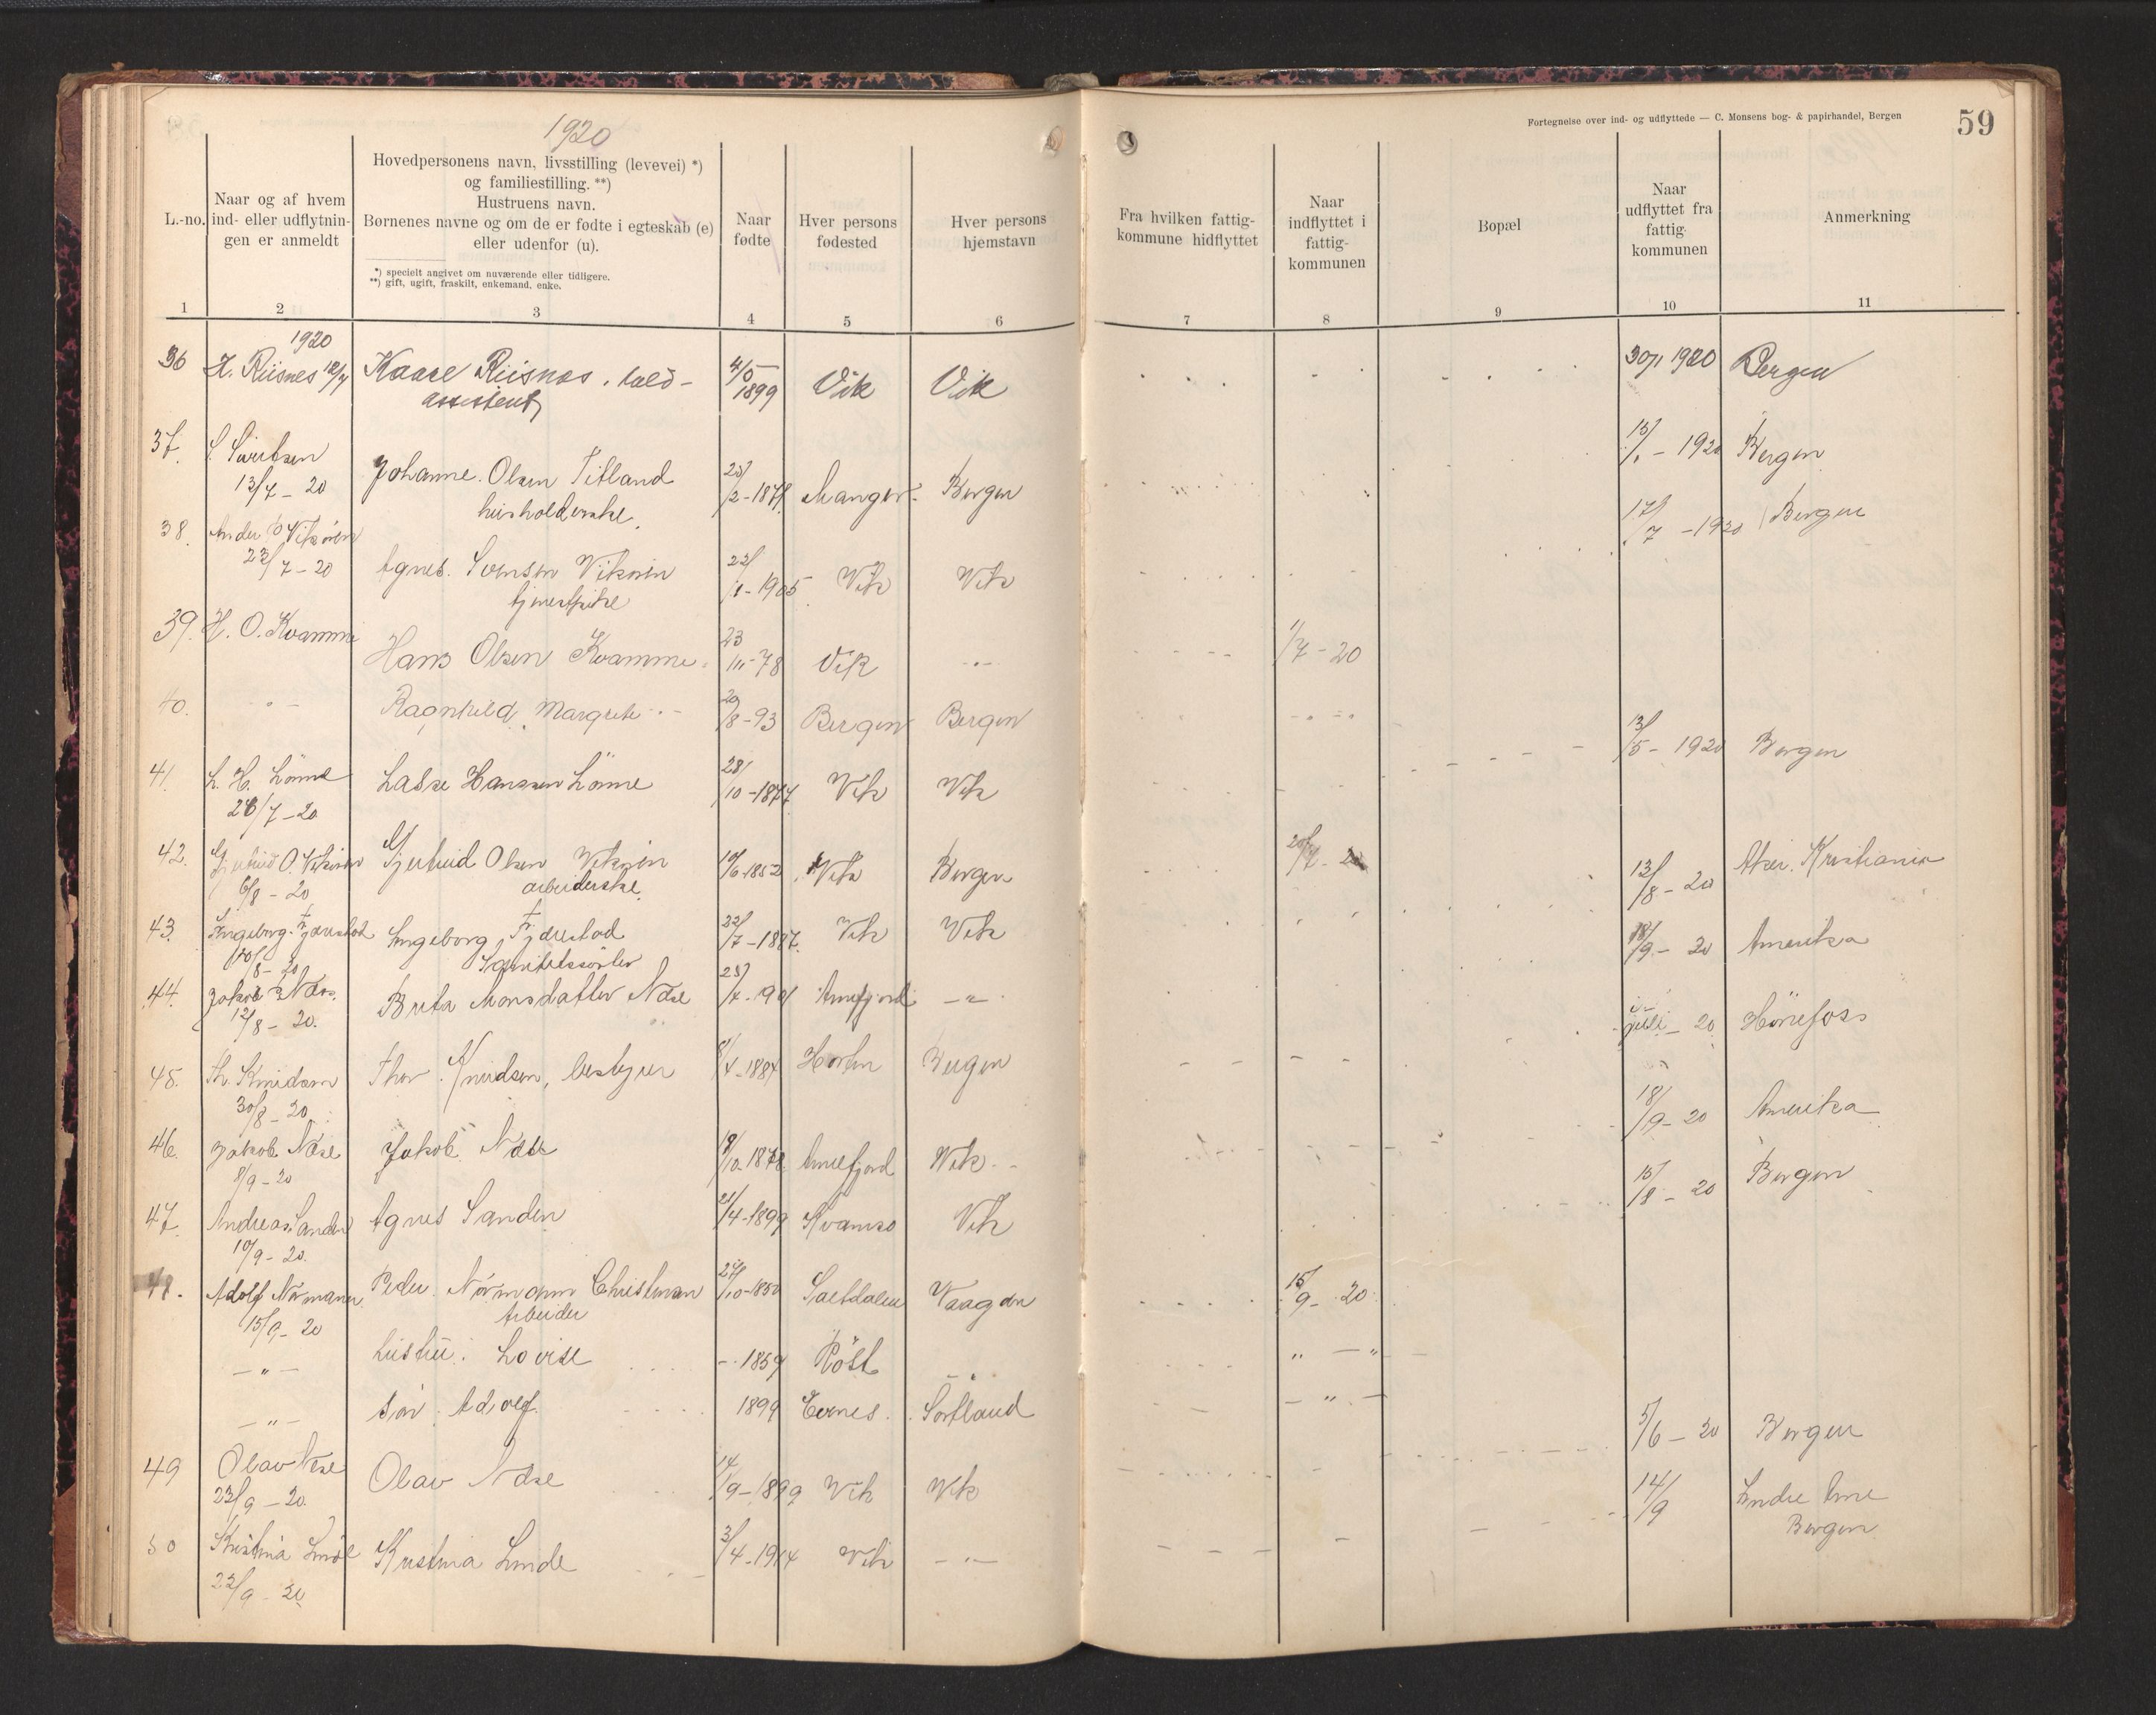 1920
Fortegnelse over ind- og udflyttede — C. Monsens bog- & papirhandel, Bergen
59
L.-no.
Naar og af hvem
ind- eller udflytnin-
gen er anmeldt
Hovedpersonens navn, livsstilling (levevei) *)
og familiestilling. **)
Hustruens navn.
Børnenes navne og om de er fødte i egteskab (e)
eller udenfor (u).
*) specielt angivet om nuværende eller tidligere.
**) gift, ugift, fraskilt, enkemand, enke.
Naar
fødte
Hver persons
fødested
Hver persons
hjemstavn
Fra hvilken fattig-
kommune hidflyttet
Naar
indflyttet i
fattig-
kommunen
Bopæl
Naar
udflyttet fra
fattig-
kommunen
Anmerkning
1 2 3 4 5 6 7 8 9 10 11
1920
36 H. Riisnes 12/7 Kaare Riisnæs 4/5 1899 Vik Vik 1920 Bergen
assistent
37. S. Sivertsen
13/7 - 20 Johanne Olsen Titland Manger Bergen 15/ - 1920 Bergen
husholderske
38. Vikören
23/7 - 20 Agnes Svensen Vikören 22/1 - 1905 Vik Vik 17/7 - 1920 Bergen
tjenestpike
39. H. O. Kvamme Hans Olsen Kvamme 23 - 78 Vik - " - 1/7 - 20
40. - " - Ragnhild Margrete - " - 20/8 - 93 Bergen Bergen - " -
41. L. H. Lönne Lasse Hanssen Lönne 28/10 - 1877 Vik Vik 13/5 - 1920 Bergen
28/7 - 20
42. Gjertrud O. Vikören Gjertrud Olsen Vikören 10/6 1852 Vik Bergen
6/8 - 20 arbeiderske 13/8 - 20 Aker. Kristiania
43. Ingeborg Fjærestad Ingeborg Fjærestad 22/7 - 1887 Vik Vik 18/9 - 20 Amerika
10/8 - 20
44. Jakob Næse Brita Monsdatter Næse 7 - 1901 Arnefjord - " - juli - 20 Hönefoss
12/8 - 20.
45. Th. Knudsen Thor Knudsen, bestyrer 8/4 - 1884 Horten Bergen
30/8 - 20
46. Jakob Næse Jakob Næse 19/10 - 1878 Arnefjord Vik 18/9 - 20 Amerika
8/9 - 20
47. Andreas Sanden Agnes Sanden 21/4 - 1899 Kvamsö Vik 15/8 - 20 Bergen
10/9 - 20.
48. Adolf Normann Peder Normann Christensen 24/10 - 1850 Saltdalen Vaagan 15/9 - 20
15/9 - 20 Arbeider
- " - hustru: Lovise - 1859 Röst - " - - " -
- " - Sön Adolf 1899 Evenes Sortland - " -
49 Olav Næse Olav Næse 14/9 - 1899 Vik Vik 5/6 - 20 Bergen
23/9 - 20.
50 Kristina Linde Kristina Linde 3/4 - 1914 Vik - " - 14/9 Bergen
22/9 - 20